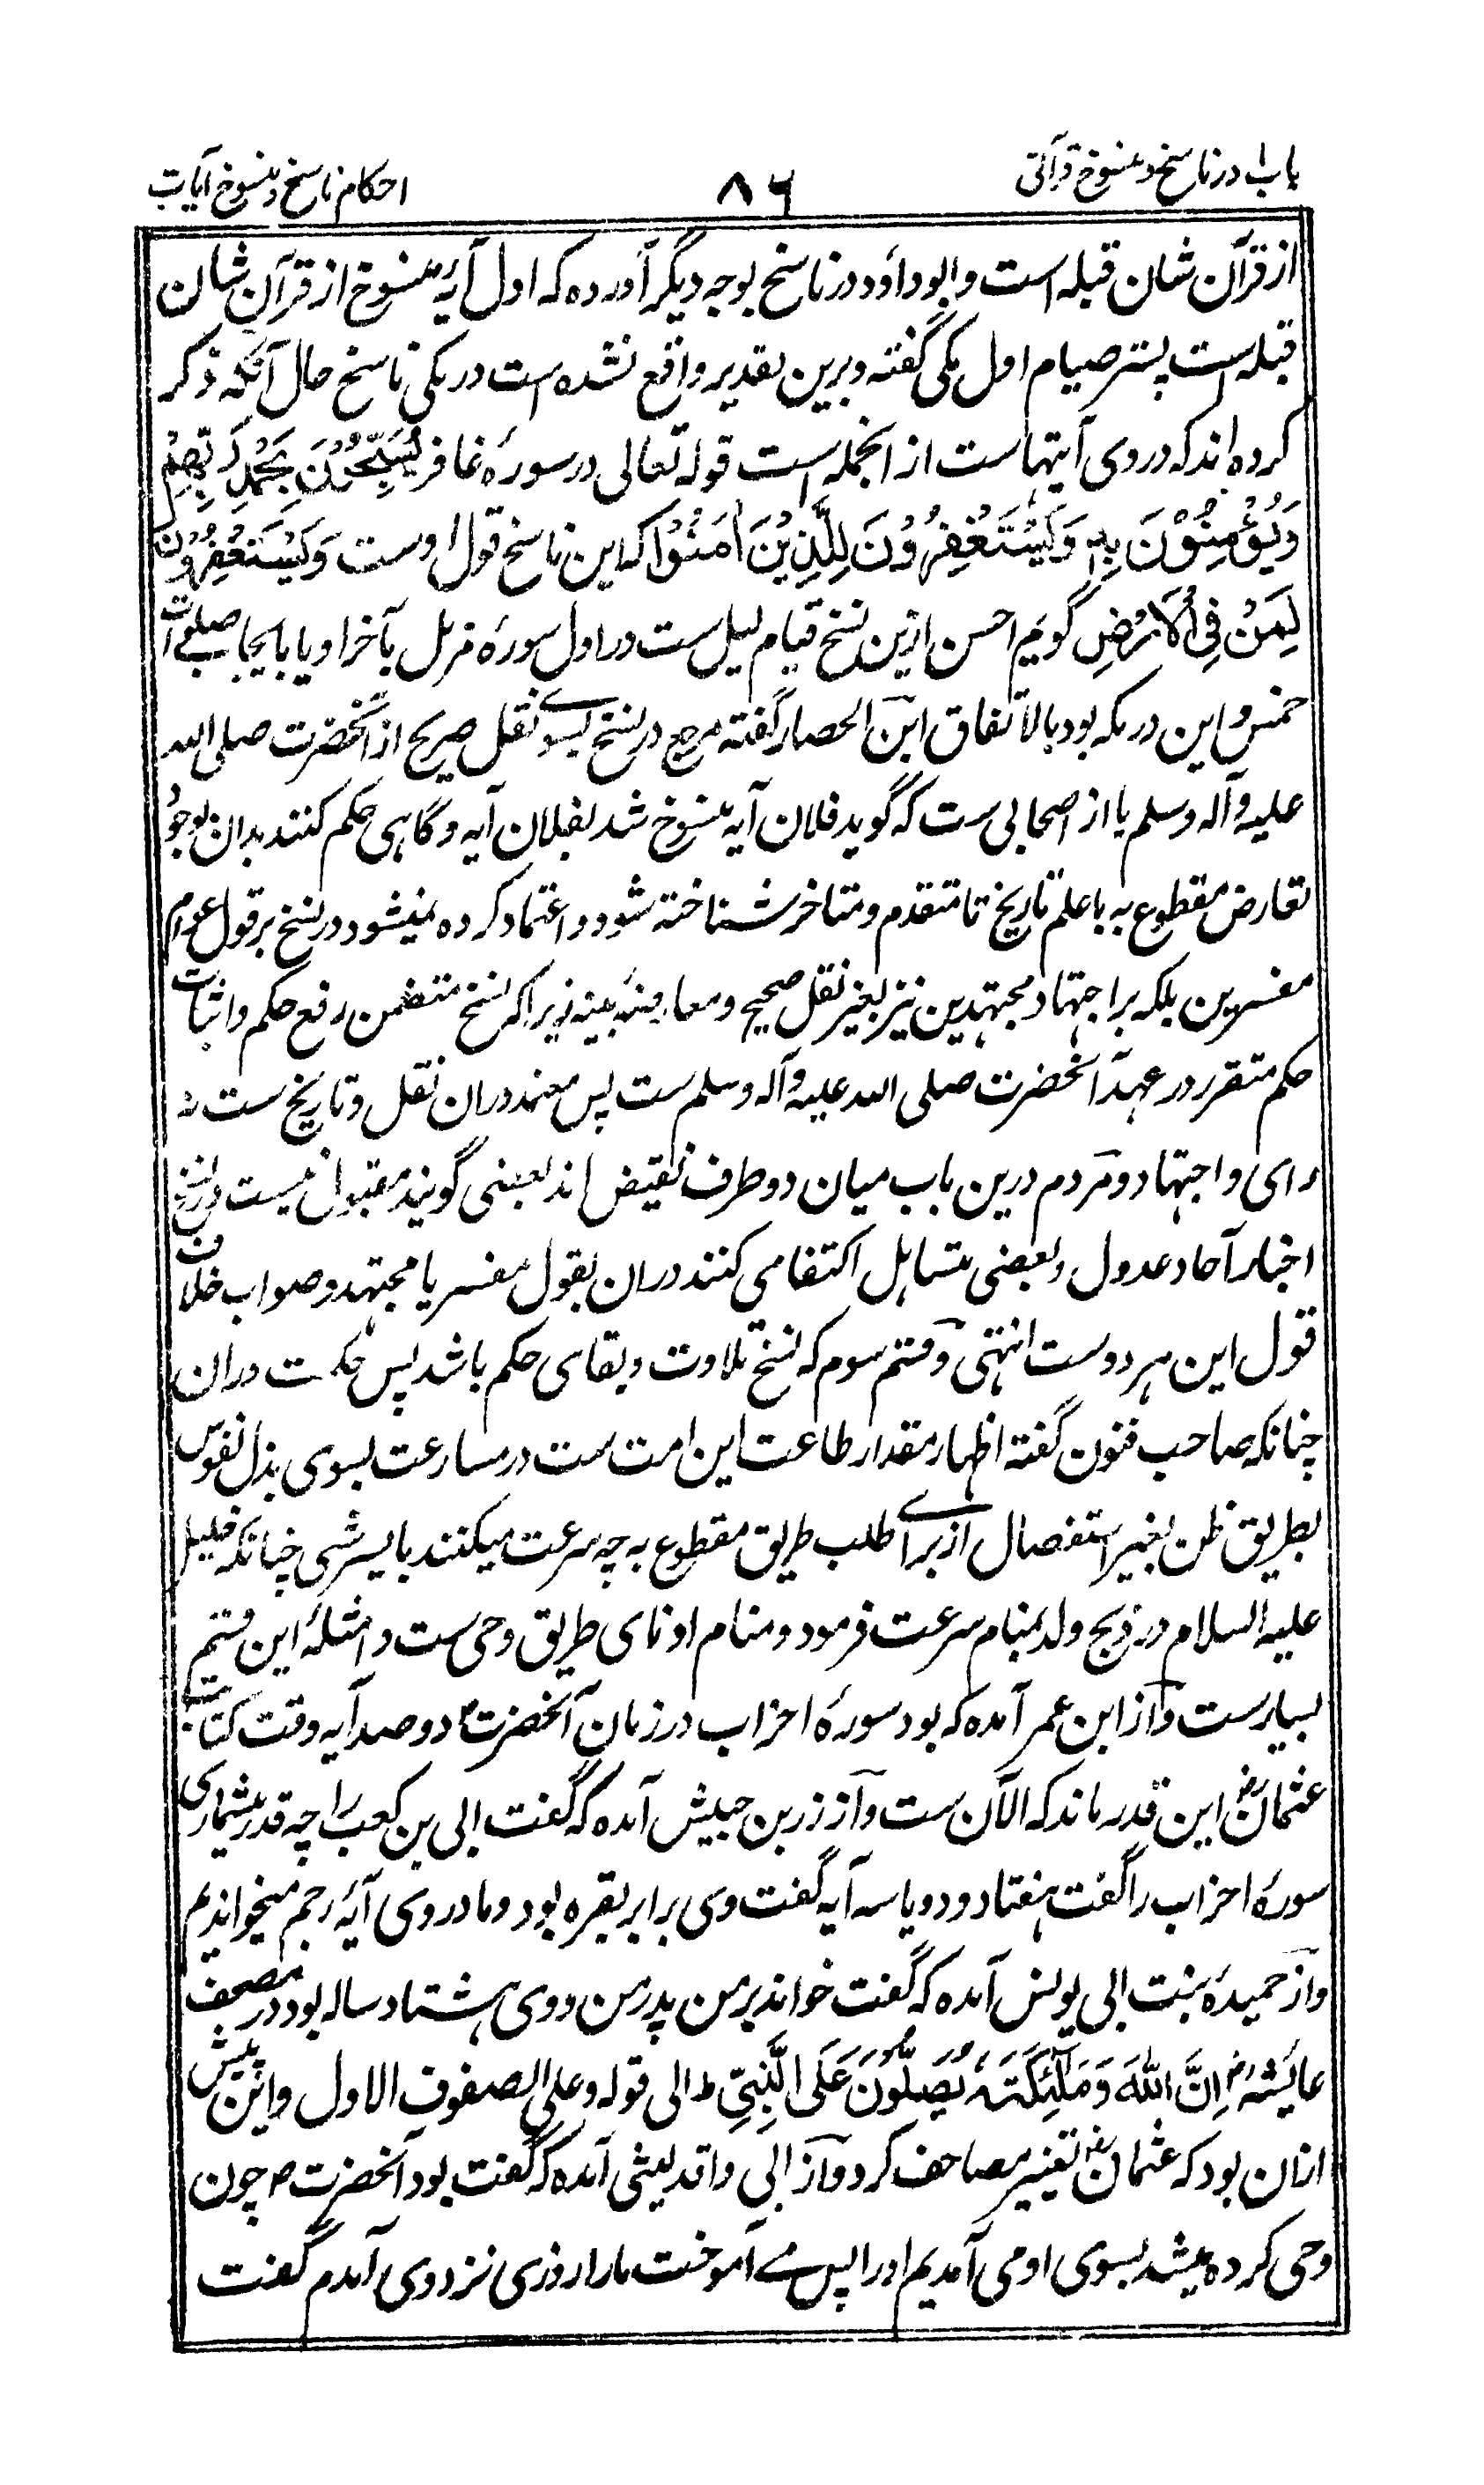 باب ۱ در ناسخ و منسوخ قرآنی
۸۶
احکام ناسخ و منسوخ آیات
از قرآن شان قبله است و ابوداؤد در ناسخ بوجه دیگر آورده که اول آیۂ منسوخ از قرآن شان
قبله است پستر صیام اول مکی گفته و برین تقدیر واقع نشده است در مکی ناسخ حال آنکه ذکر
کرده اند که در وی آیتهاست از انجمله است قوله تعالی در سورۂ غافر یُسَبِّحُوْنَ بِحَمْدِ رَبِّهِمْ
وَیُؤْمِنُوْنَ بِهٖ وَیَسْتَغْفِرُوْنَ لِلَّذِیْنَ اٰمَنُوْا که این ناسخ قول اوست وَیَسْتَغْفِرُوْنَ
لِمَنْ فِی الْاَرْضِ گویم احسن ازین نسخ قیام لیل ست در اول سورۂ مزمل بآخر او یا بایجاب صلوات
خمس و این در مکه بود بالاتفاق ابن الحصار گفته مرجع در نسخ بسوے نقل صریح از آنحضرت صلی الله
علیه وآله وسلم یا از صحابی ست که گوید فلان آیه منسوخ شد بفلان آیه و گاهی حکم کنند بدان بوجود
تعارض مقطوع به با علم تاریخ تا متقدم و متاخر شناخته شود و اعتماد کرده نمیشود در نسخ بر قول عوام
مفسرین بلکه بر اجتهاد مجتهدین نیز بغیر نقل صحیح و معاینۂ بینه زیراکه نسخ متضمن رفع حکم و اثبات
حکم متقرر در عهد آنحضرت صلی الله علیه وآله وسلم ست پس معتمد دران نقل و تاریخ ست نه
رای و اجتهاد و مردم درین باب میان دو طرف نقیض اند بعضی گویند مقبول نیست در نسخ
اخبار آحاد عدول و بعضی متساهل اکتفا می کنند دران بقول مفسر یا مجتهد و صواب خلاف
قول این هر دوست انتهی و قسم سوم که نسخ تلاوت و بقای حکم باشد پس حکمت دران
چنانکه صاحب فنون گفته اظهار مقدار طاعت این امت ست در مسارعت بسوی بذل نفوس
بطریق ظن بغیر استفصال از براے طلب طریق مقطوع به چه سرعت میکنند بایسر شی چنانکه خلیل
علیه السلام در ذبح ولد بمنام سرعت فرمود و منام ادنای طریق وحی ست و امثلۂ این قسم
بسیارست و از ابن عمر آمده که بود سورۂ احزاب در زمان آنحضرتؐ دو صد آیه وقت کتابت
عثمانؓ این قدر ماند که الآن ست و از زر بن حبیش آمده که گفت ابی بن کعب را چه قدر میشماری
سورۂ احزاب را گفت هفتاد و دو یا سه آیه گفت وی برابر بقره بود و ما در وی آیۂ رجم میخواندیم
و از حمیده بنت ابی یونس آمده که گفت خواند بر من پدر من و وی هشتاد ساله بود در مصحف
عایشهؓ اِنَّ اللهَ وَمَلٰٓئِکَتَهٗ یُصَلُّوْنَ عَلَی النَّبِیِّ ط الی قوله وعلی الصفوف الاول و این پیش
ازان بود که عثمانؓ تغییر مصاحف کرد و از ابی واقد لیثی آمده که گفت بود آنحضرت ص چون
وحی کرده میشد بسوی او می آمدیم او را پس مے آموخت ما را روزی نزد وی آمدم گفت